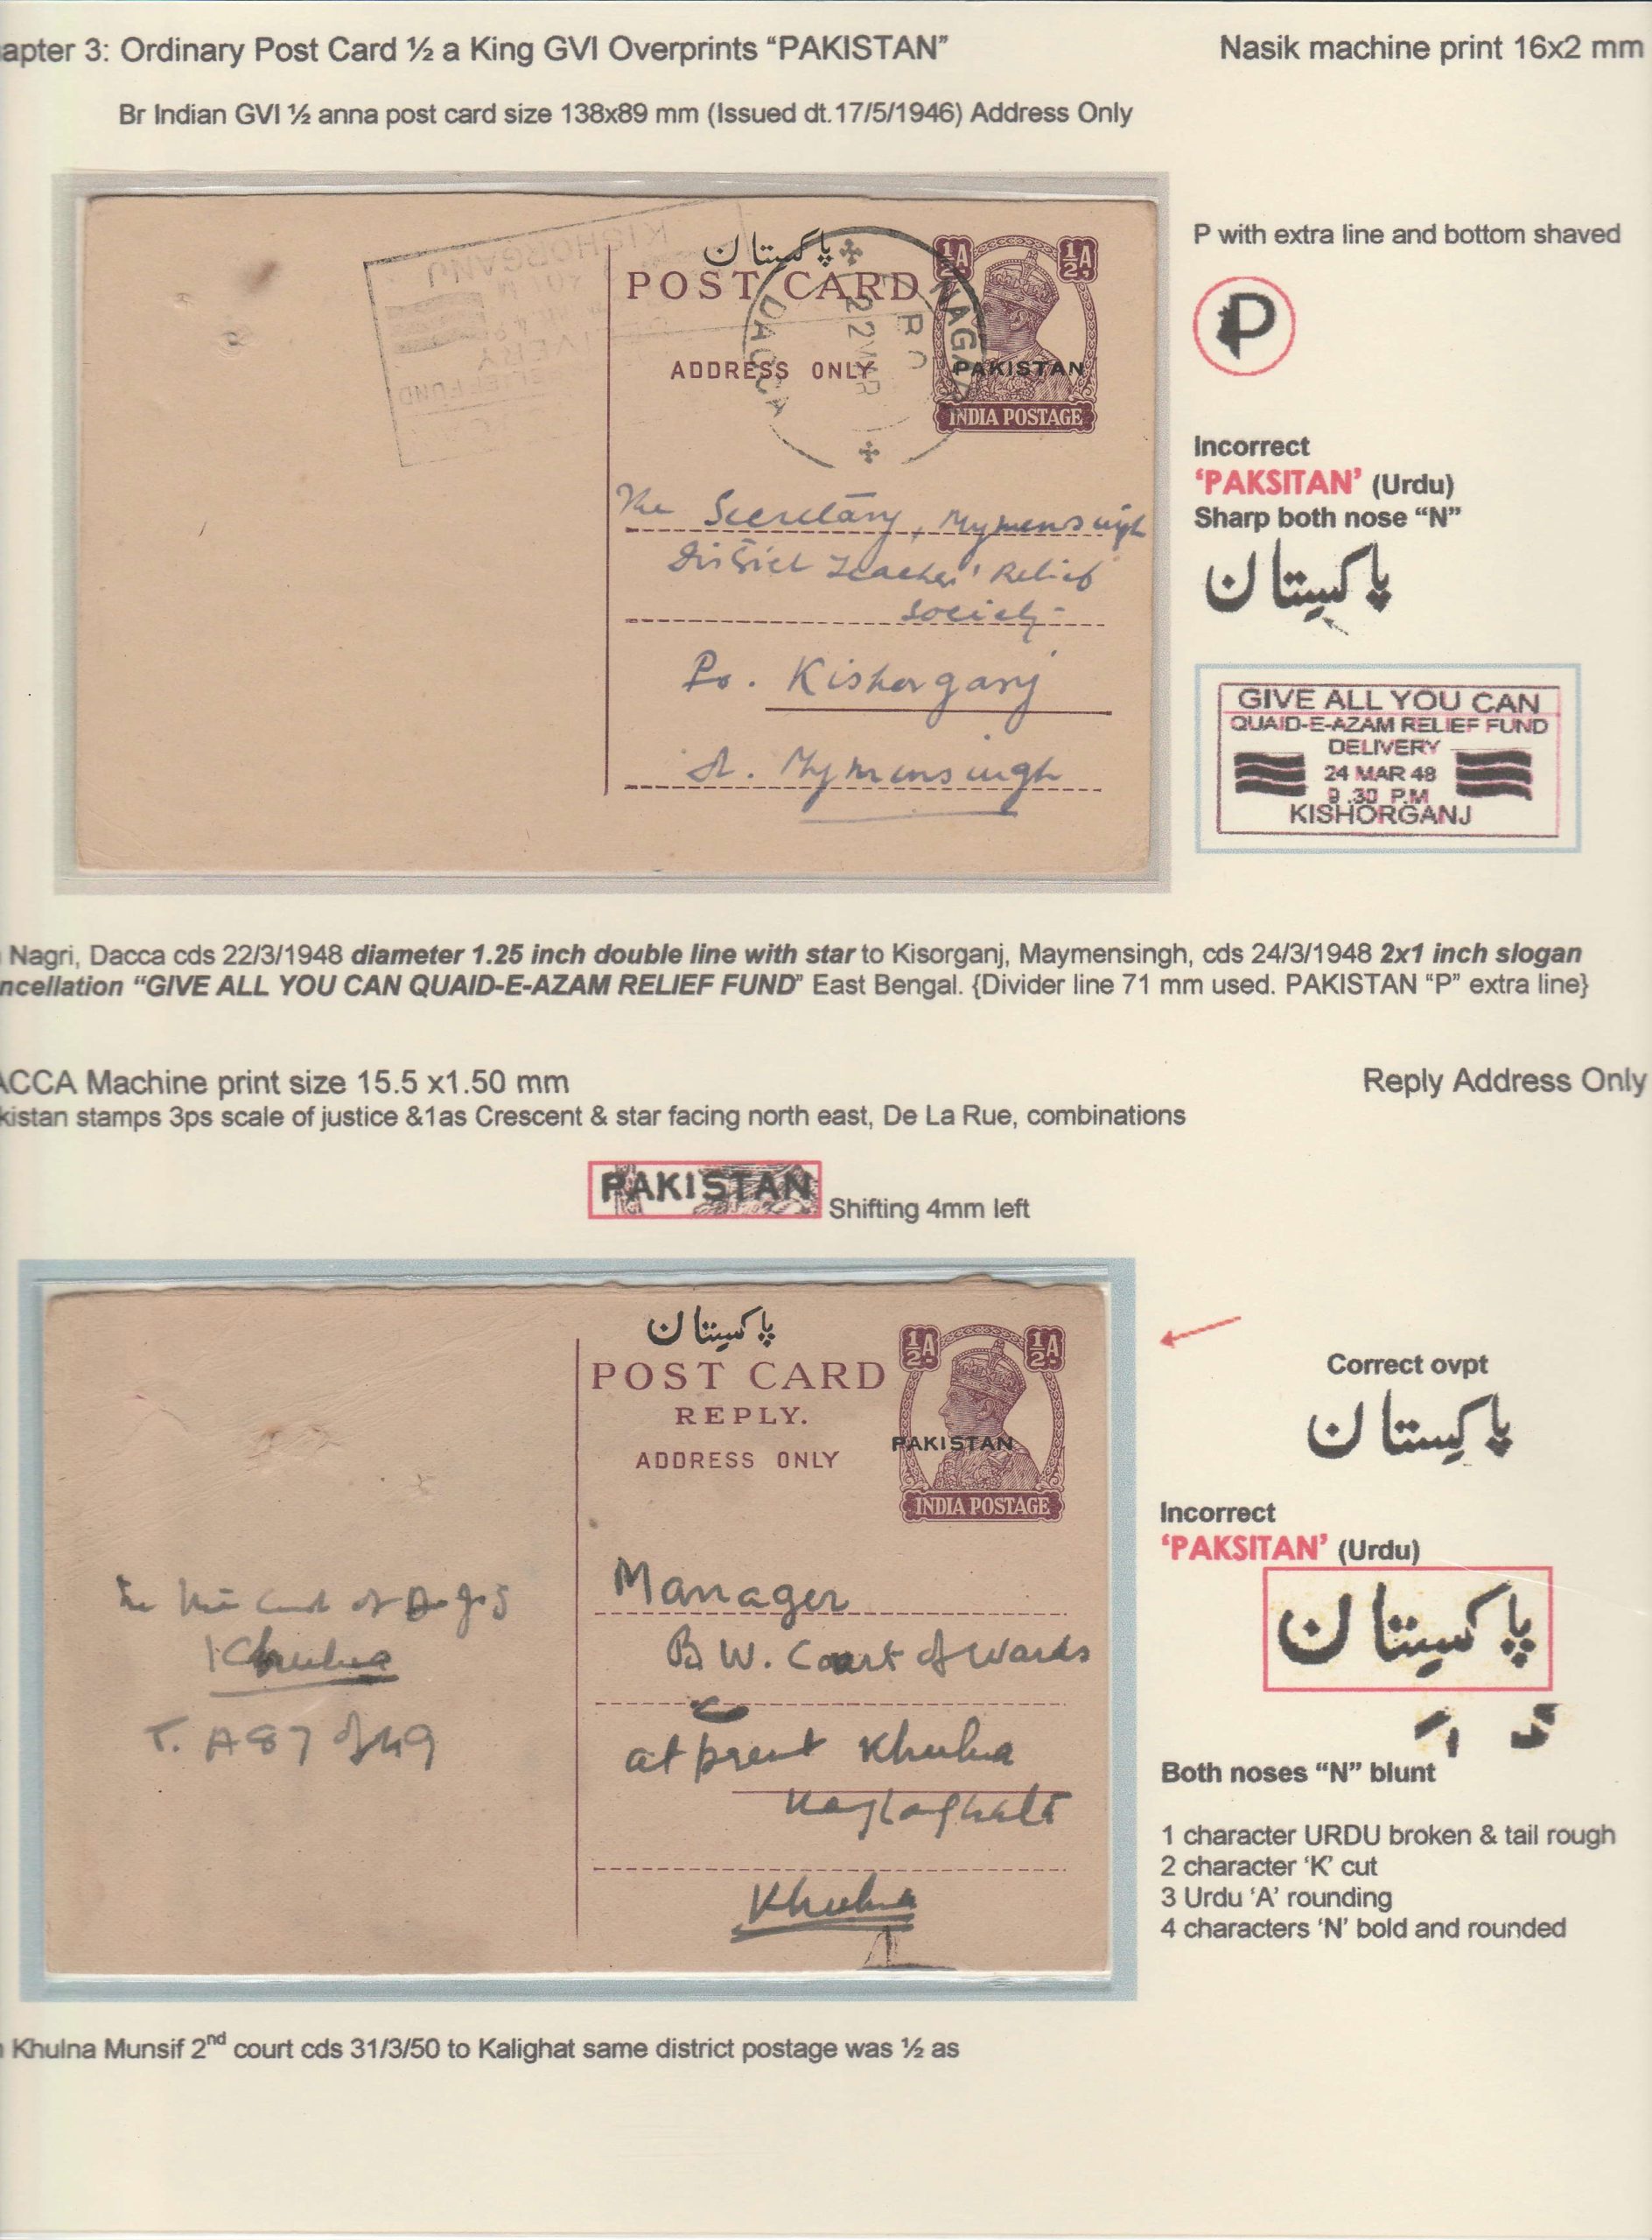 apter 3: Ordinary Post Card ½ a King GVI Overprints “PAKISTAN”
Nasik machine print 16x2 mm
Br Indian GVI ½ anna post card size 138x89 mm (Issued dt.17/5/1946) Address Only
KISHORGANJ
پاکستان
POST CARD
ADDRESS ONLY
½A ½A
PAKISTAN
INDIA POSTAGE
NAGARI
DACCA
22 MAR
The Secretary, Mymensingh
District Teachers' Relief
Society
Po. Kishorganj
Dt. Mymensingh
P with extra line and bottom shaved
P
Incorrect
‘PAKSITAN’ (Urdu)
Sharp both nose “N”
پاکستان
GIVE ALL YOU CAN
QUAID-E-AZAM RELIEF FUND
DELIVERY
24 MAR 48
9.30 P.M
KISHORGANJ
Nagri, Dacca cds 22/3/1948 diameter 1.25 inch double line with star to Kisorganj, Maymensingh, cds 24/3/1948 2x1 inch slogan
ncellation “GIVE ALL YOU CAN QUAID-E-AZAM RELIEF FUND” East Bengal. {Divider line 71 mm used. PAKISTAN “P” extra line}
ACCA Machine print size 15.5 x1.50 mm
Reply Address Only
kistan stamps 3ps scale of justice &1as Crescent & star facing north east, De La Rue, combinations
PAKISTAN Shifting 4mm left
پاکستان
POST CARD
REPLY.
ADDRESS ONLY
½A ½A
PAKISTAN
INDIA POSTAGE
Manager
B W. Court of Wards
at present Khulna
Khulna
Khulna
T. A 87 of 49
Correct ovpt
پاکستان
Incorrect
‘PAKSITAN’ (Urdu)
پاکستان
Both noses “N” blunt
1 character URDU broken & tail rough
2 character ‘K’ cut
3 Urdu ‘A’ rounding
4 characters ‘N’ bold and rounded
Khulna Munsif 2nd court cds 31/3/50 to Kalighat same district postage was ½ as